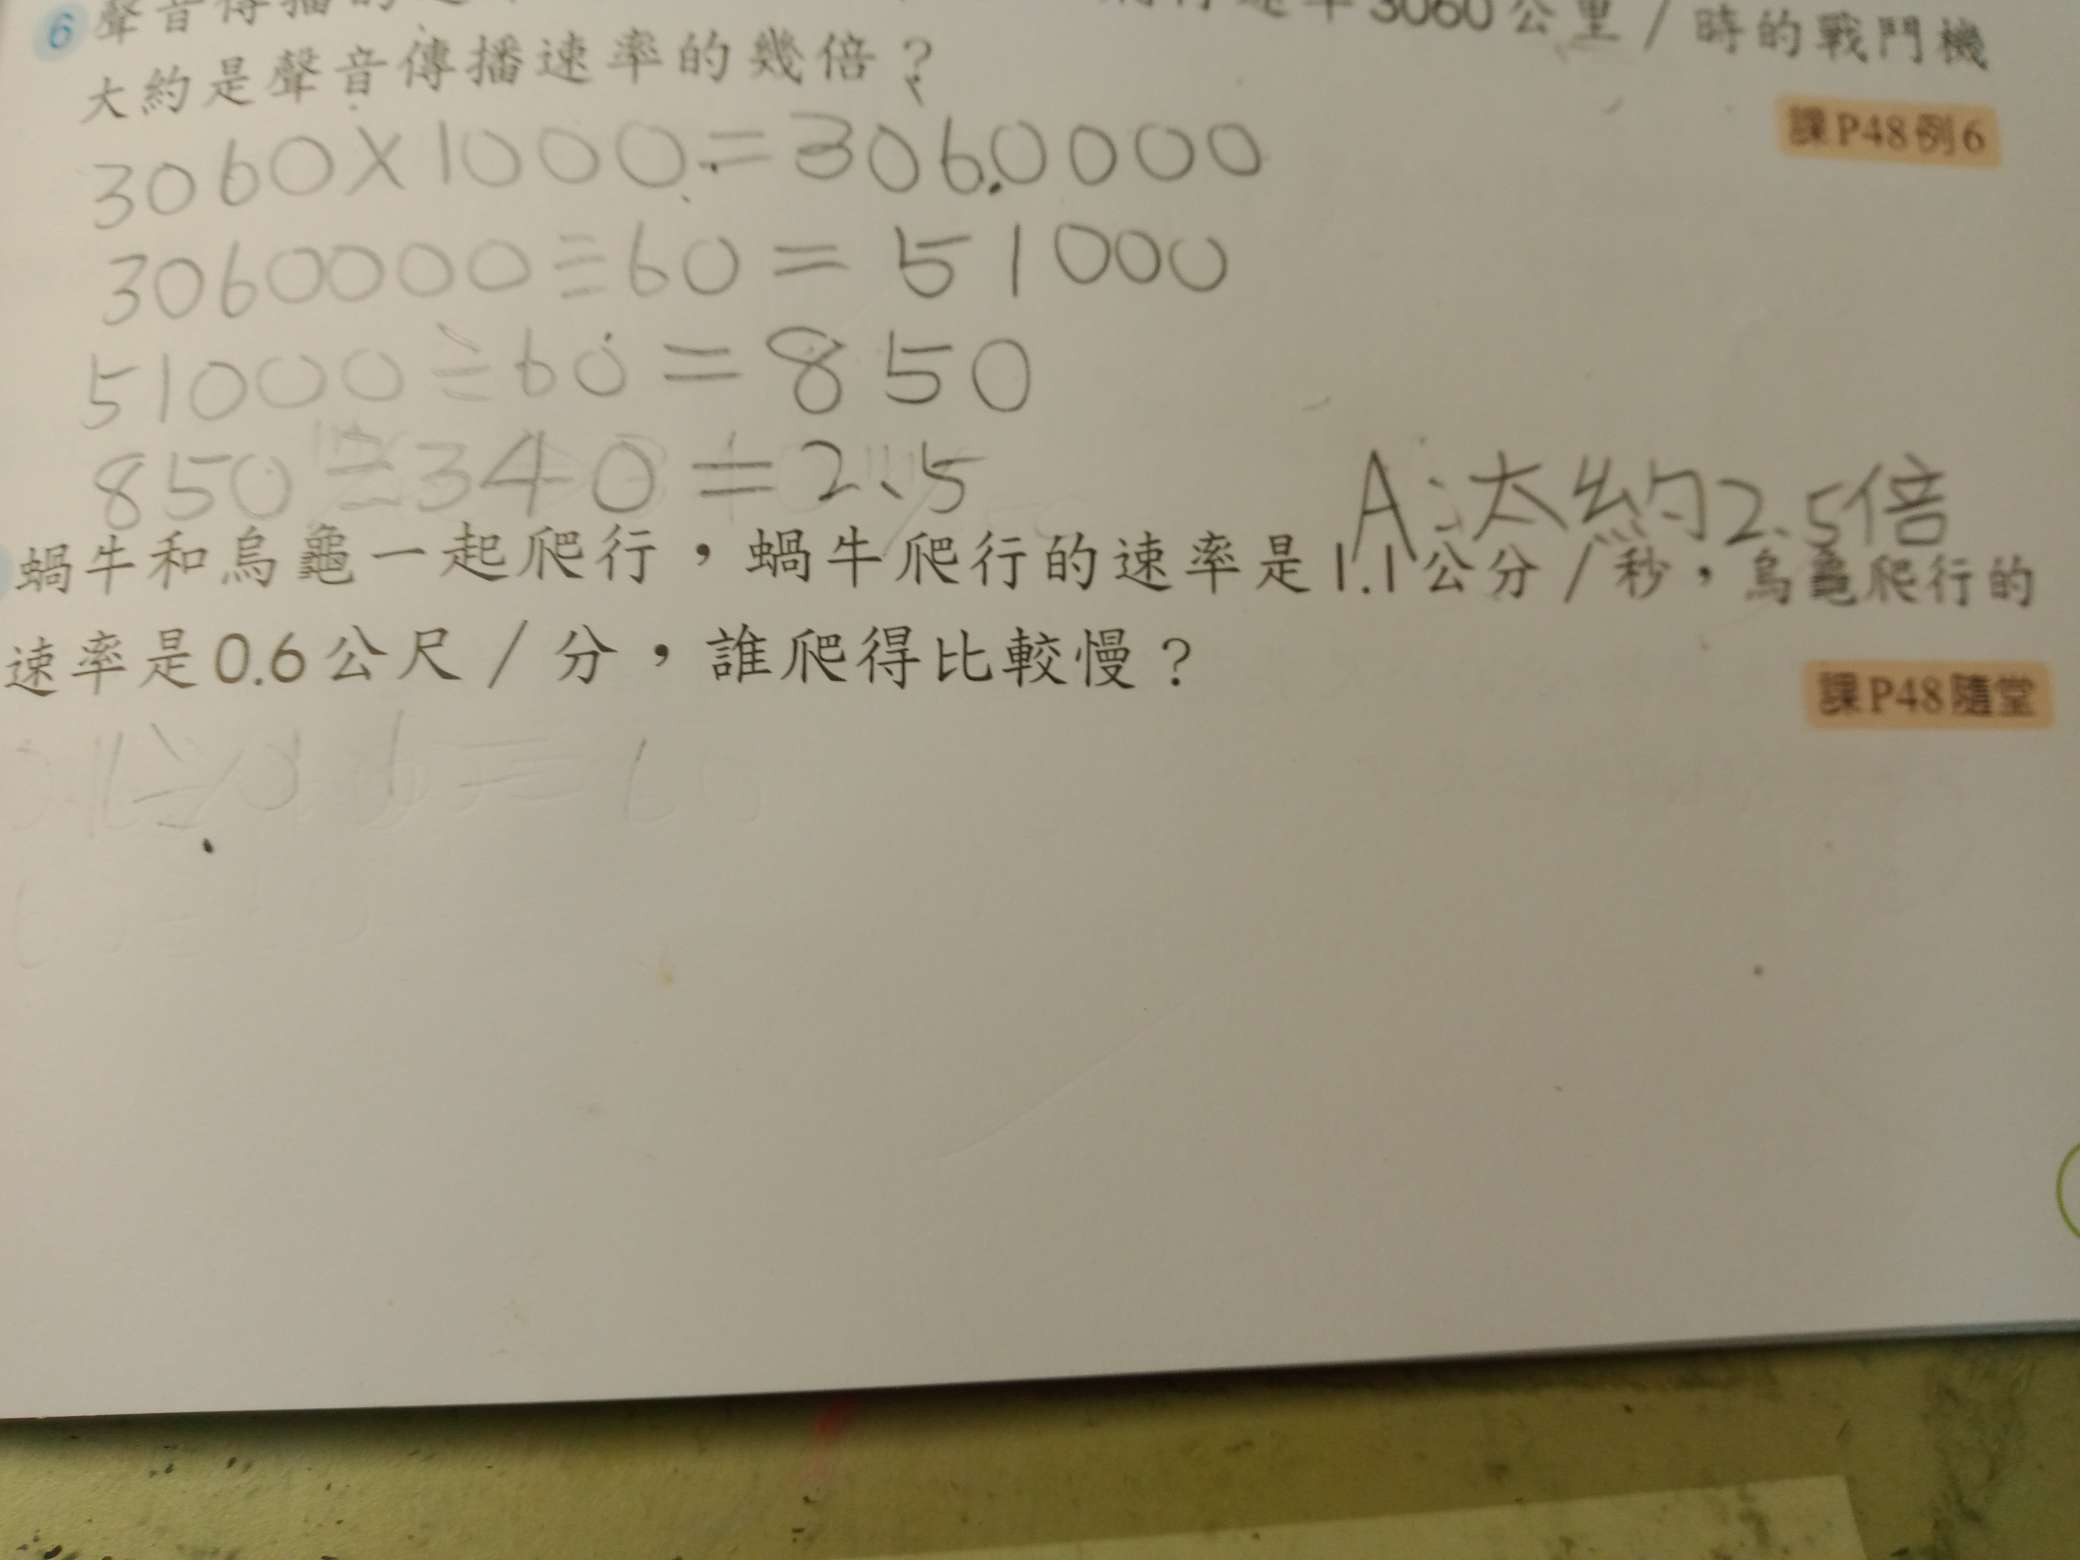 6 聲音傳播的速 3060公里/時的戰鬥機
大約是聲音傳播速率的幾倍？
課P48例6
3060×1000=3060000
3060000÷60=51000
51000÷60=850
850÷340=2.5
A:大約2.5倍
蝸牛和烏龜一起爬行，蝸牛爬行的速率是1.1公分/秒，烏龜爬行的
速率是0.6公尺/分，誰爬得比較慢？
課P48隨堂